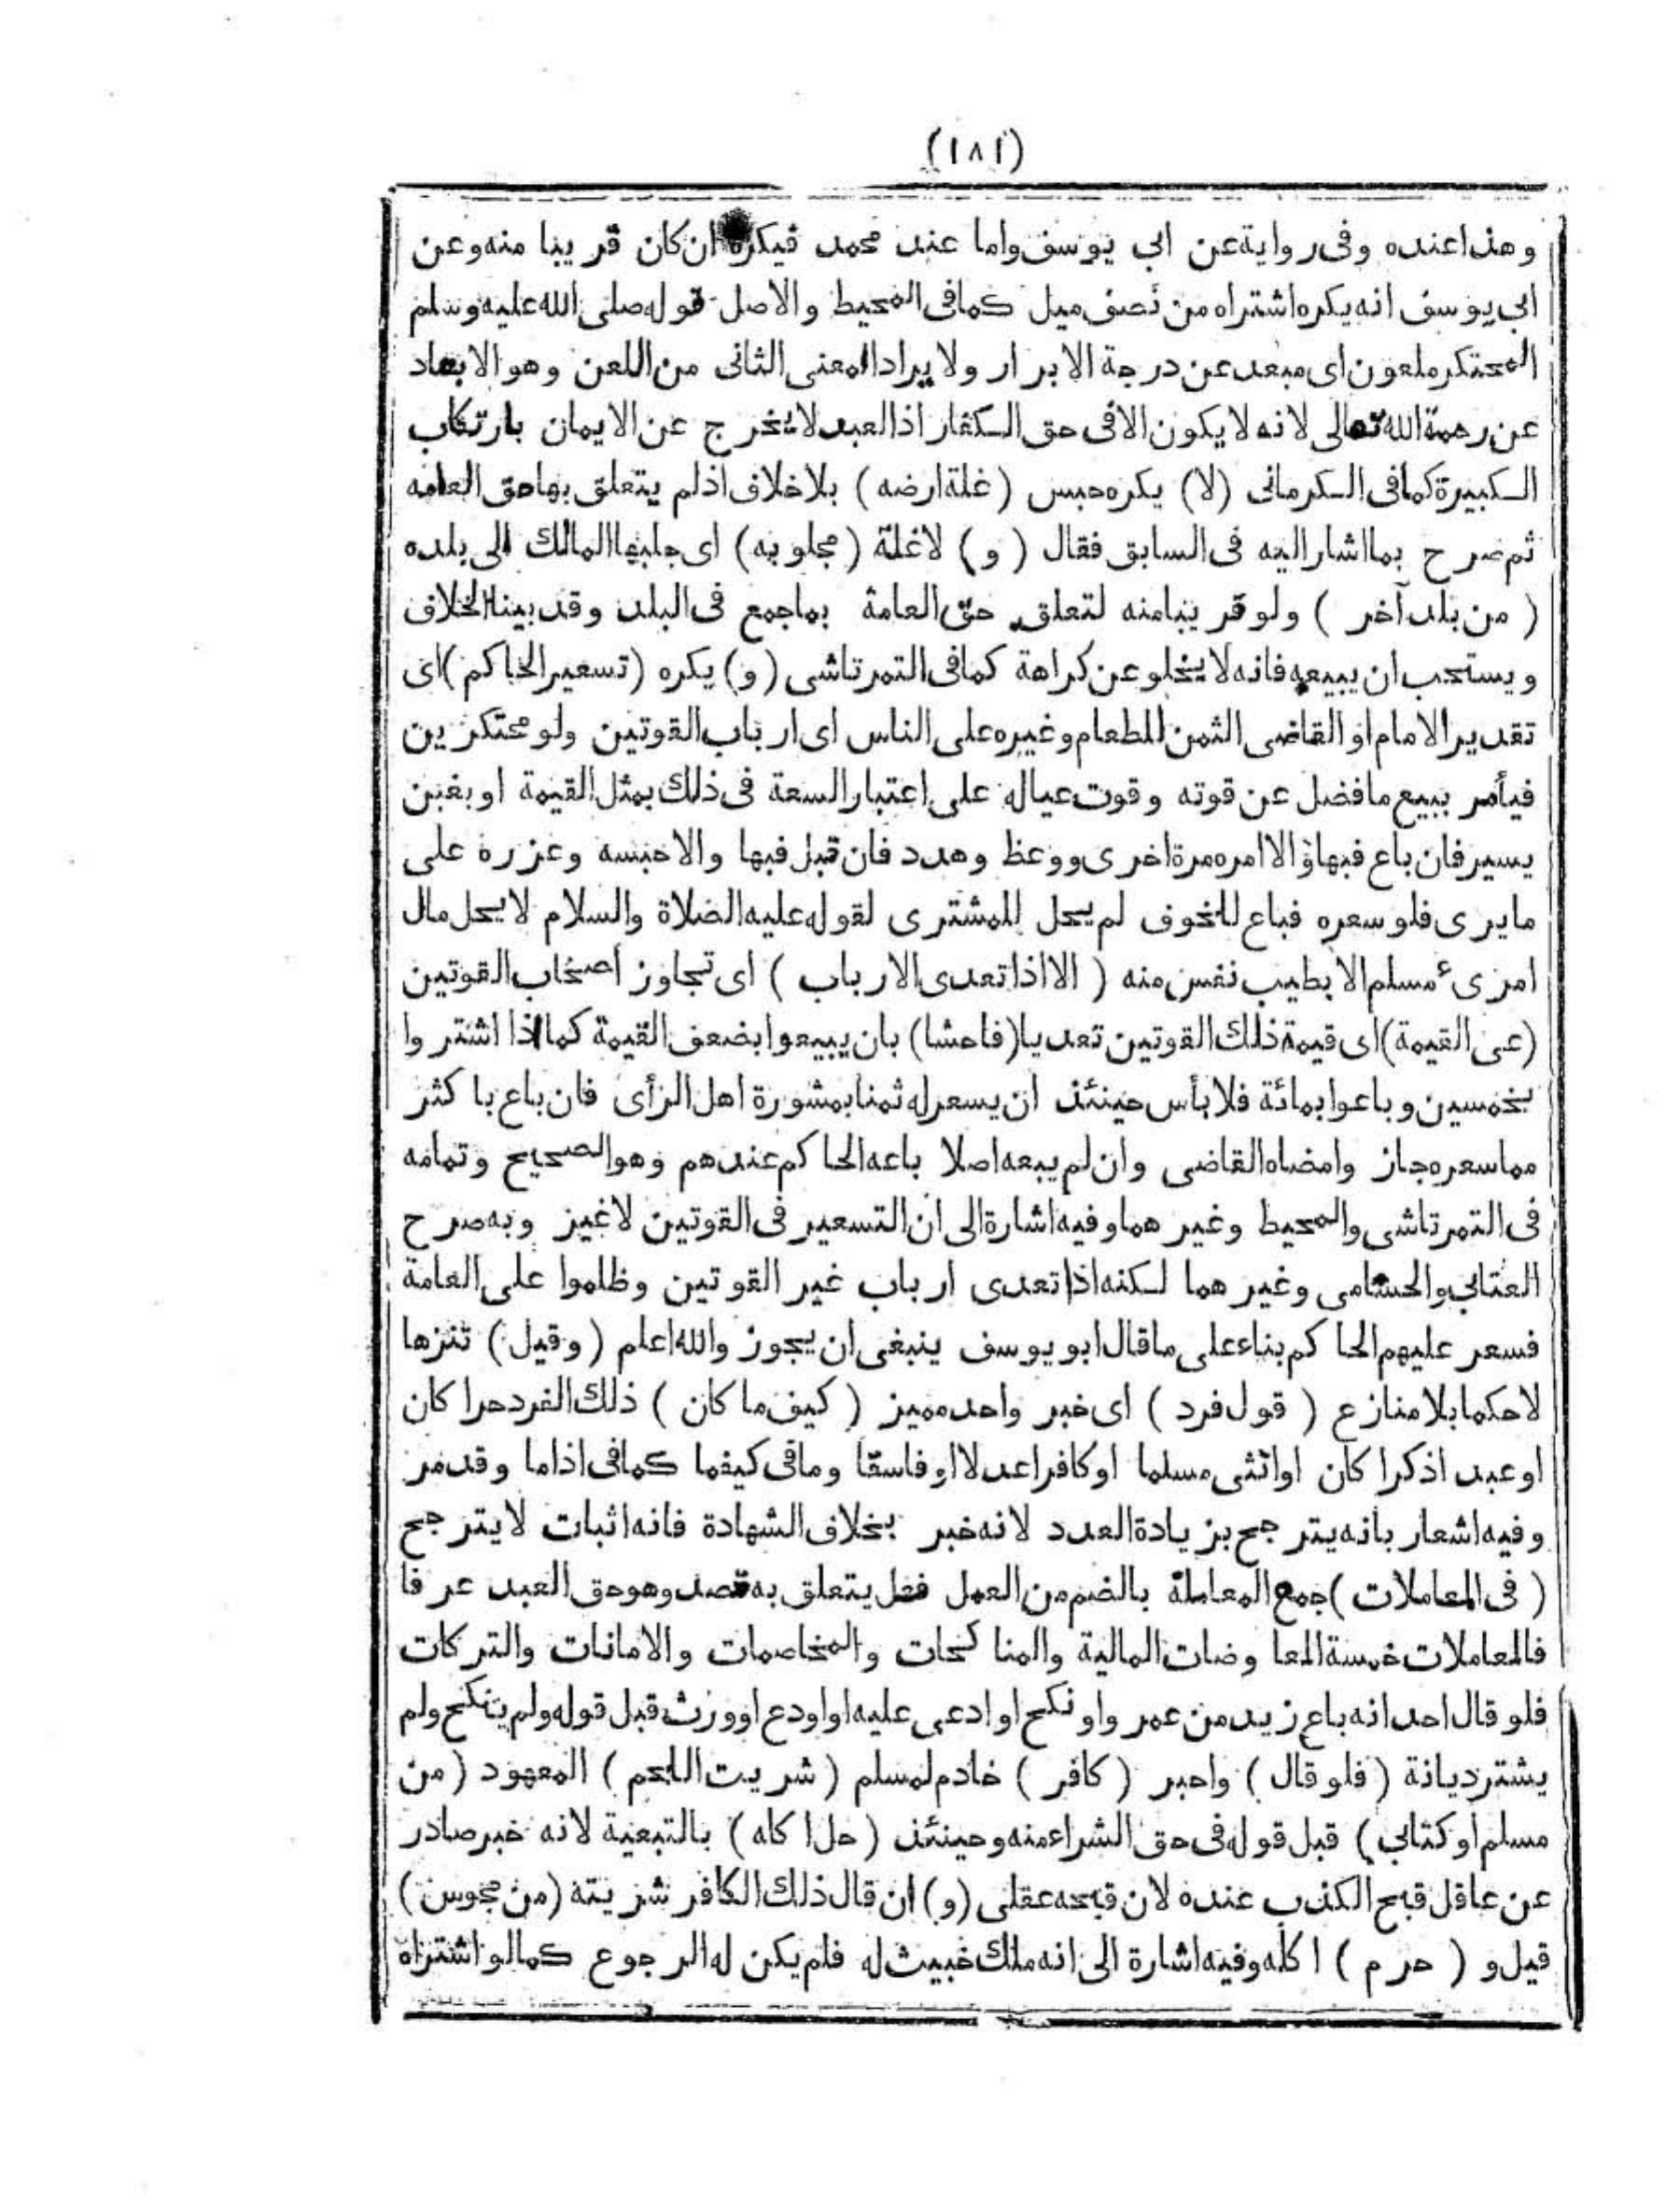 (١٨١)
وهذا عنده وفى رواية عن ابي يوسف واما عند محمد فيكره ان كان قريبا منه وعن
ابي يوسف انه يكره اشتراه من نصف ميل كما فى المحيط والاصل قوله صلى الله عليه وسلم
المحتكر ملعون اى مبعد عن درجة الابرار ولا يراد المعنى الثانى من اللعن وهو الابعاد
عن رحمة الله تعالى لانه لا يكون الا فى حق الكفار اذ العبد لا يخرج عن الايمان بارتكاب
الكبيرة كما فى الكرمانى (لا) يكره حبس (غلة ارضه) بلا خلاف اذ لم يتعلق بها حق العامه
ثم صرح بما اشار اليه فى السابق فقال (و) لا غلة (مجلوبه) اى جلبها المالك الى بلده
(من بلد آخر) ولو قريبا منه لتعلق حق العامة بما جمع فى البلد وقد بينا الخلاف
ويستحب ان يبيعه فانه لا يخلو عن كراهة كما فى التمرتاشى (و) يكره (تسعير الحاكم) اى
تقدير الامام او القاضى الثمن للطعام وغيره على الناس اى ارباب القوتين ولو محتكرين
فيأمر ببيع ما فضل عن قوته وقوت عياله على اعتبار السعة فى ذلك بمثل القيمة او بغبن
يسير فان باع فبها والا امره مرة اخرى ووعظ وهدد فان قبل فبها والا حبسه وعزره على
ما يرى فلو سعره فباع للخوف لم يحل للمشترى لقوله عليه الصلاة والسلام لا يحل مال
امرىء مسلم الا بطيب نفس منه (الا اذا تعدى الارباب) اى تجاوز أصحاب القوتين
(عن القيمة) اى قيمة ذلك القوتين تعديا (فاحشا) بان يبيعوا بضعف القيمة كما اذا اشتروا
بخمسين وباعوا بمائة فلا بأس حينئذ ان يسعر له ثمنا بمشورة اهل الرأى فان باع باكثر
مما سعره جاز وامضاه القاضى وان لم يبعه اصلا باعه الحاكم عندهم وهو الصحيح وتمامه
فى التمرتاشى والمحيط وغيرهما وفيه اشارة الى ان التسعير فى القوتين لا غير وبه صرح
العتابي والحسامى وغيرهما لكنه اذا تعدى ارباب غير القوتين وظلموا على العامة
فسعر عليهم الحاكم بناء على ما قال ابو يوسف ينبغى ان يجوز والله اعلم (وقيل) تنزها
لا حكما بلا منازع (قول فرد) اى خبر واحد مميز (كيف ما كان) ذلك الفرد حرا كان
او عبد اذكرا كان او انثى مسلما او كافرا عدلا او فاسقا وما فى كيفما كما فى اذاما وقد مر
وفيه اشعار بانه يترجح بزيادة العدد لانه خبر بخلاف الشهادة فانه اثبات لا يترجح
(فى المعاملات) جمع المعاملة بالضم من العمل فعل يتعلق به قصد وهو حق العبد عرفا
فالمعاملات خمسة المعاوضات المالية والمناكحات والمخاصمات والامانات والتركات
فلو قال احد انه باع زيد من عمر واو نكح او ادعى عليه او اودع او ورث قبل قوله ولم ينكح ولم
يشتر ديانة (فلو قال) واحبر (كافر) خادم لمسلم (شريت اللحم) المعهود (من
مسلم او كتابي) قبل قوله فى حق الشراء منه وحينئذ (حل اكله) بالتبعية لانه خبر صادر
عن عاقل قبح الكذب عنده لان قبحه عقلى (و) ان قال ذلك الكافر شريته (من مجوس)
قيل و (حرم) اكله وفيه اشارة الى انه ملك خبيث له فلم يكن له الرجوع كما لو اشتراه